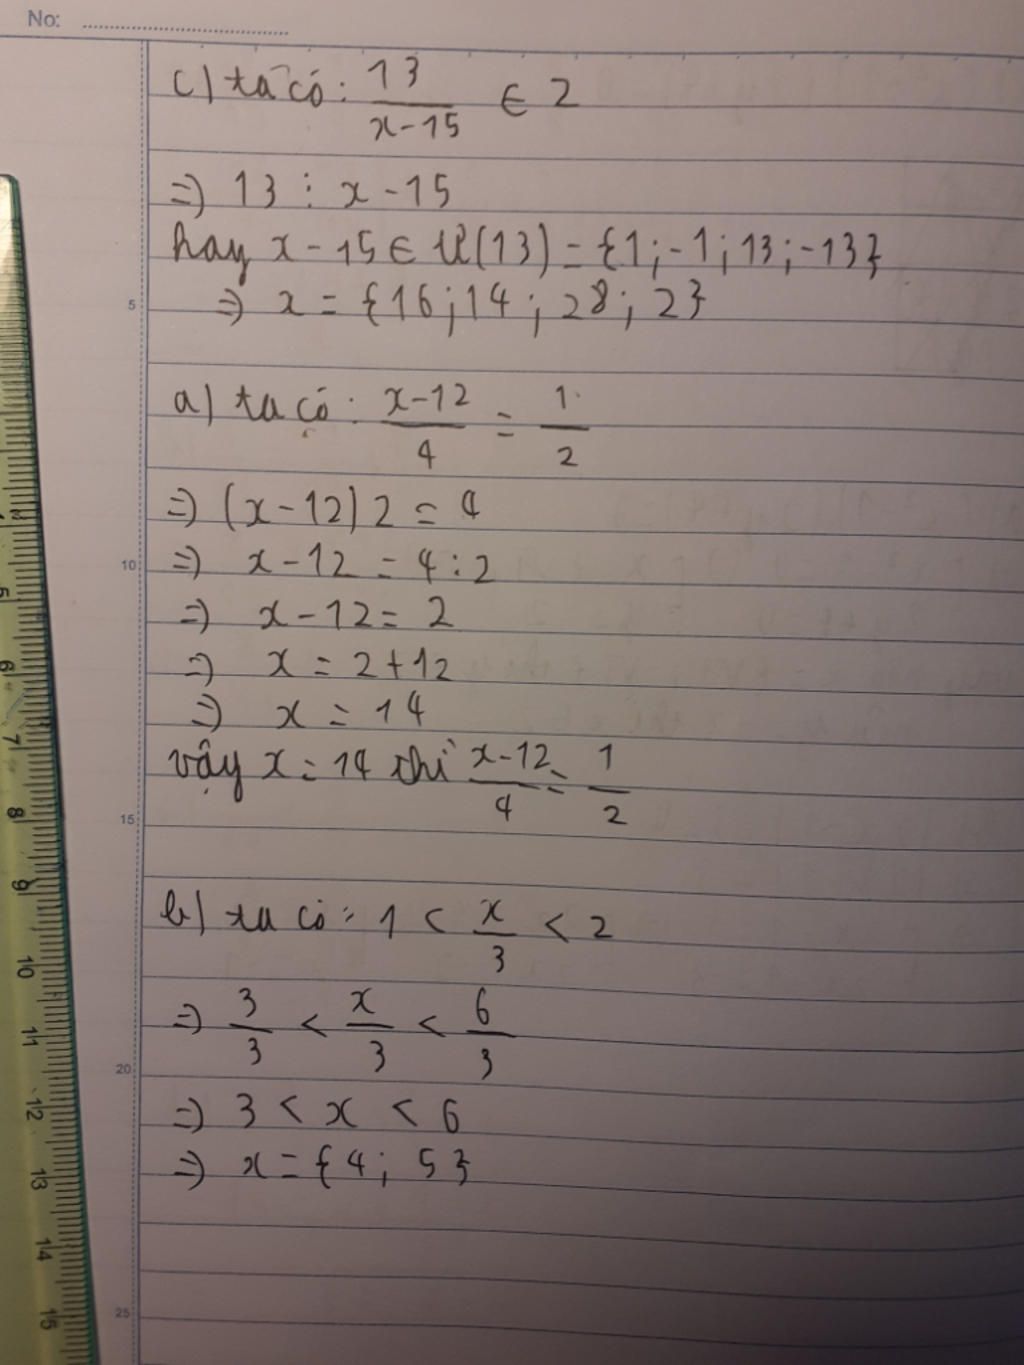 No:
c) ta có: 13/(x-15) ∈ Z
=> 13 ⋮ x - 15
hay x - 15 ∈ Ư(13) = {1; -1; 13; -13}
=> x = {16; 14; 28; 2}
a) ta có: (x-12)/4 = 1/2
=> (x-12) 2 = 4
=> x - 12 = 4 : 2
=> x - 12 = 2
=> x = 2 + 12
=> x = 14
vậy x = 14 thì (x-12)/4 = 1/2
b) ta có: 1 < x/3 < 2
=> 3/3 < x/3 < 6/3
=> 3 < x < 6
=> x = {4; 5}
5
10
15
20
25
5
6
7
8
9
10
11
12
13
14
15